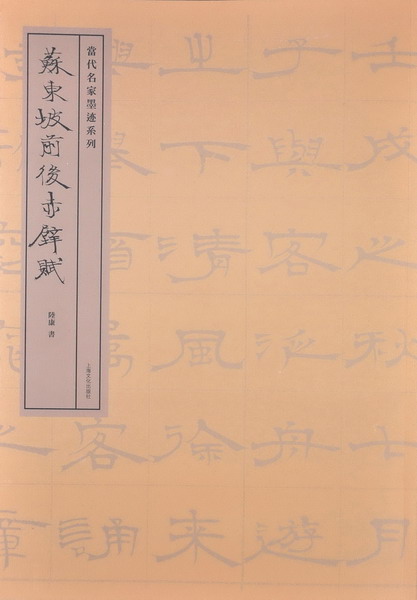 當代名家墨迹系列
蘇東坡前後赤壁賦
陸康 書
上海文化出版社
壬戌之秋七月
子與客泛舟遊
之下清風徐來
客誦
章